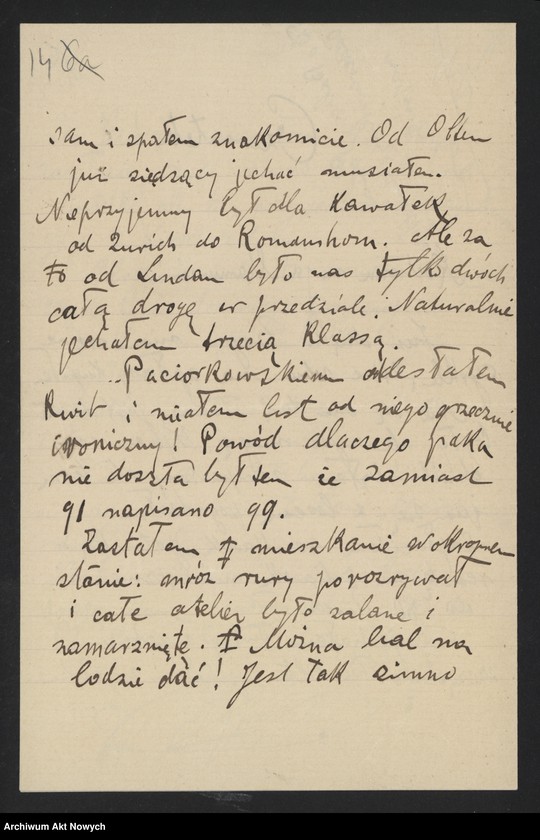 14 6a
sam i spałem znakomicie. Od Olten
już siedzący jechać musiałem.
Nieprzyjemny był dla kawałek
od Zurich do Romanshorn. Ale za
to od Lindau było nas tylko dwóch
całą drogę w przedziale. Naturalnie
jechałem trzecią klassą.
Paciorkowskiemu odesłałem
kwit i miałem list od niego grzecznie
ironiczny! Powód dlaczego paka
nie doszła był ten że zamiast
91 napisano 99.
Zastałem mieszkanie w okropnem
stanie: mróz rury porozrywał
i całe atelier było zalane i
zamarznięte. Można bal na
lodzie dać! Jest tak zimno
Archiwum Akt Nowych